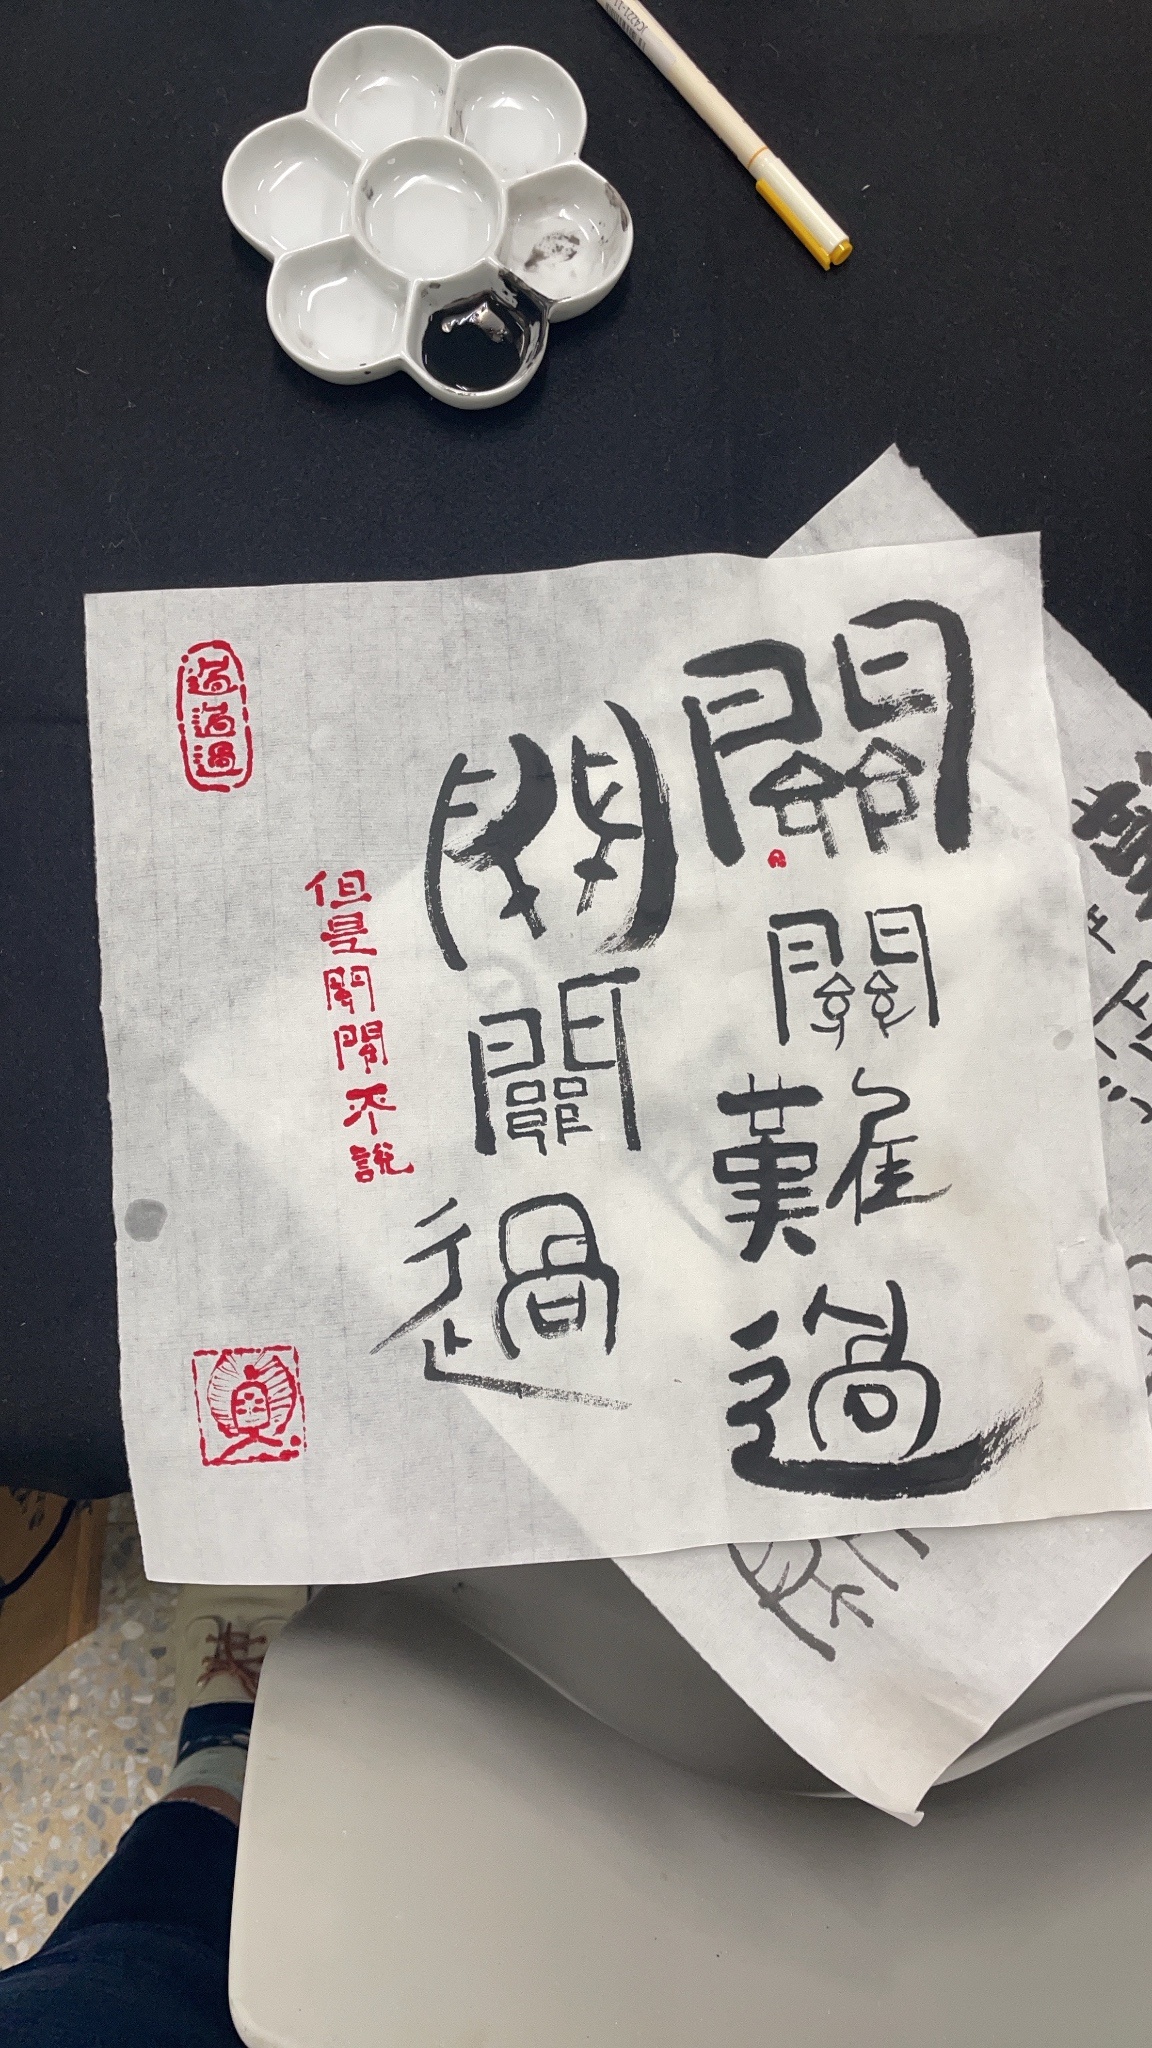 關關難過
關關過
但是關關不說
過過過